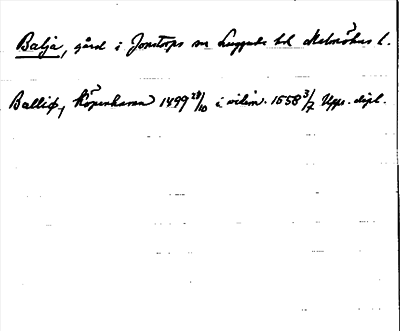 Balja, gård i Jonstorps sn Luggude hd Malmöhus l.
Balliø, Köpenhamn 1499 28/10 i vidim. 1558 3/7 Upps. dipl.